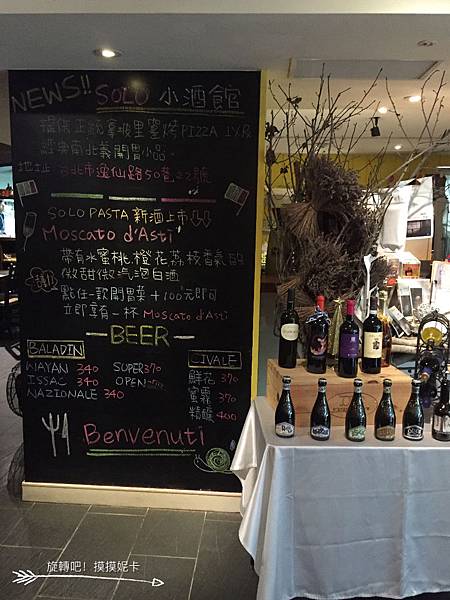 NEWS!! SOLO 小酒館
提供正統拿坡里窯烤PIZZA
經典南北義開胃小品。
地址:台北市逸仙路50巷22號
SOLO PASTA 新酒上市
Moscato d'Asti
帶有水蜜桃橙花荔枝香氣的
微甜微汽泡白酒
點任一款開胃菜+100元即可
立即享有一杯 Moscato d'Asti
BEER
BALADIN
WAYAN 340 SUPER 370
ISSAC 340 OPEN
NAZIONALE 340
CIVALE
鮮花 370
蜜霏 370
精釀 400
Benvenuti
旋轉吧! 摸摸妮卡